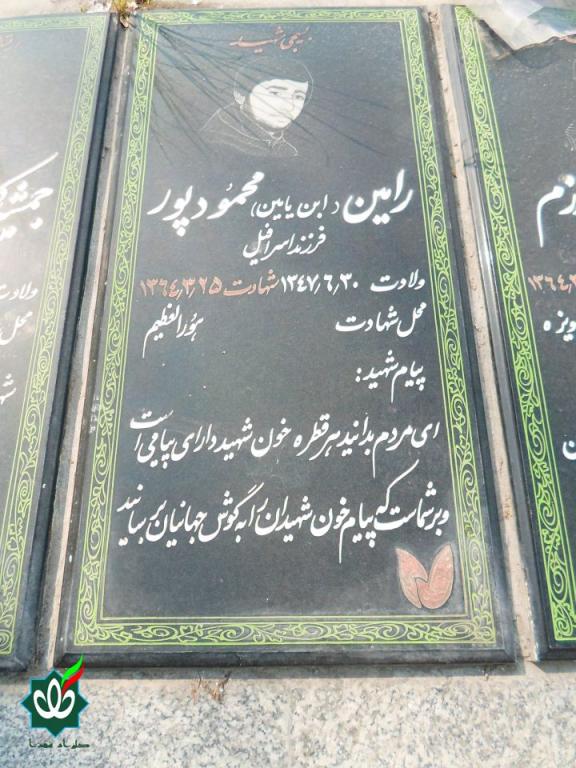 بسیجی شهید
رامین (ابن یامین) محمود پور
فرزند اسرافیل
ولادت ۱۳۴۷٫۶٫۳۰ شهادت ۱۳۶۴٫۳٫۲۵
محل شهادت هورالعظیم
پیام شهید:
ای مردم بدانید هر قطره خون شهید دارای پیامی است
و بر شماست که پیام خون شهیدان را به گوش جهانیان برسانید
جمشید
ولادت